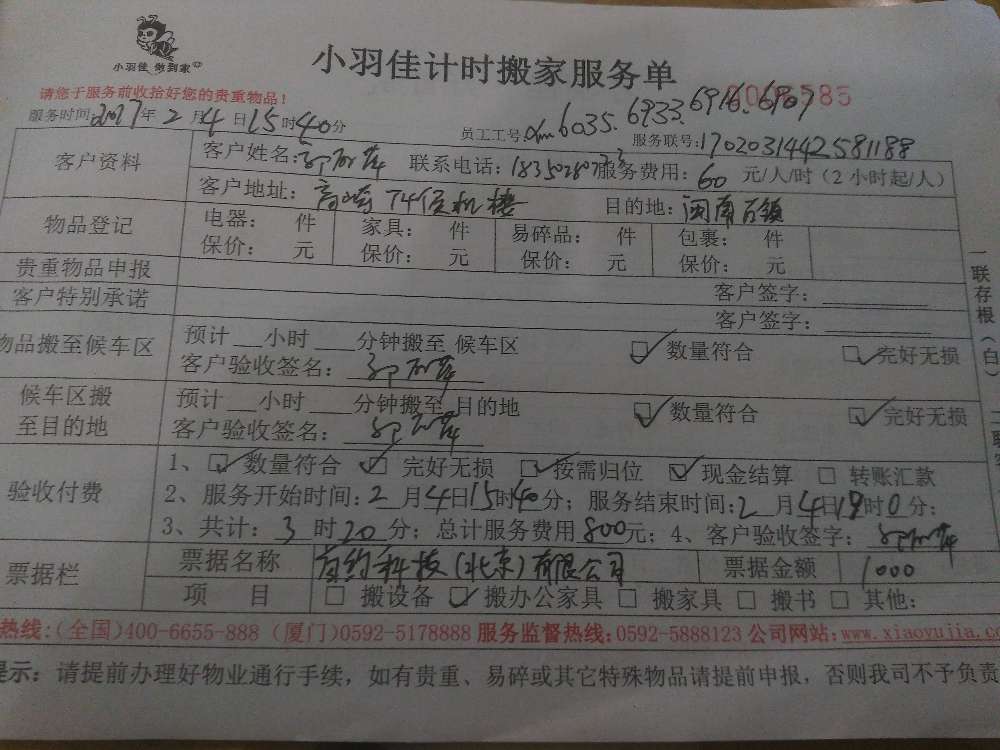 小羽佳 做到家
小羽佳计时搬家服务单
请您于服务前收拾好您的贵重物品！
服务时间：2017年2月4日15时40分
员工工号：6035.6933.6916.6907
服务联号：1702031442581188
客户资料 客户姓名： 联系电话： 服务费用：60元/人/时（2小时起/人）
客户地址：高崎T4候机楼 目的地：闽南古镇
物品登记 电器： 件 家具： 件 易碎品： 件 包裹： 件
保价： 元 保价： 元 保价： 元 保价： 元
贵重物品申报 客户签字：
客户特别承诺 客户签字：
物品搬至候车区 预计 小时 分钟搬至 候车区
客户验收签名： 数量符合 完好无损
候车区搬至目的地 预计 小时 分钟搬至 目的地
客户验收签名： 数量符合 完好无损
验收付费 1、☑数量符合 ☑完好无损 ☑按需归位 ☑现金结算 □转账汇款
2、服务开始时间：2月4日15时40分；服务结束时间：2月4日19时0分；
3、共计：3时20分；总计服务费用800元；4、客户验收签字：
票据栏 票据名称 首约科技（北京）有限公司 票据金额 1000
项目 □搬设备 ☑搬办公家具 □搬家具 □搬书 □其他：
热线：（全国）400-6655-888（厦门）0592-5178888 服务监督热线：0592-5888123 公司网站：www.xiaoyujia.c
提示：请提前办理好物业通行手续，如有贵重、易碎或其它特殊物品请提前申报，否则我司不予负责
一联存根（白）